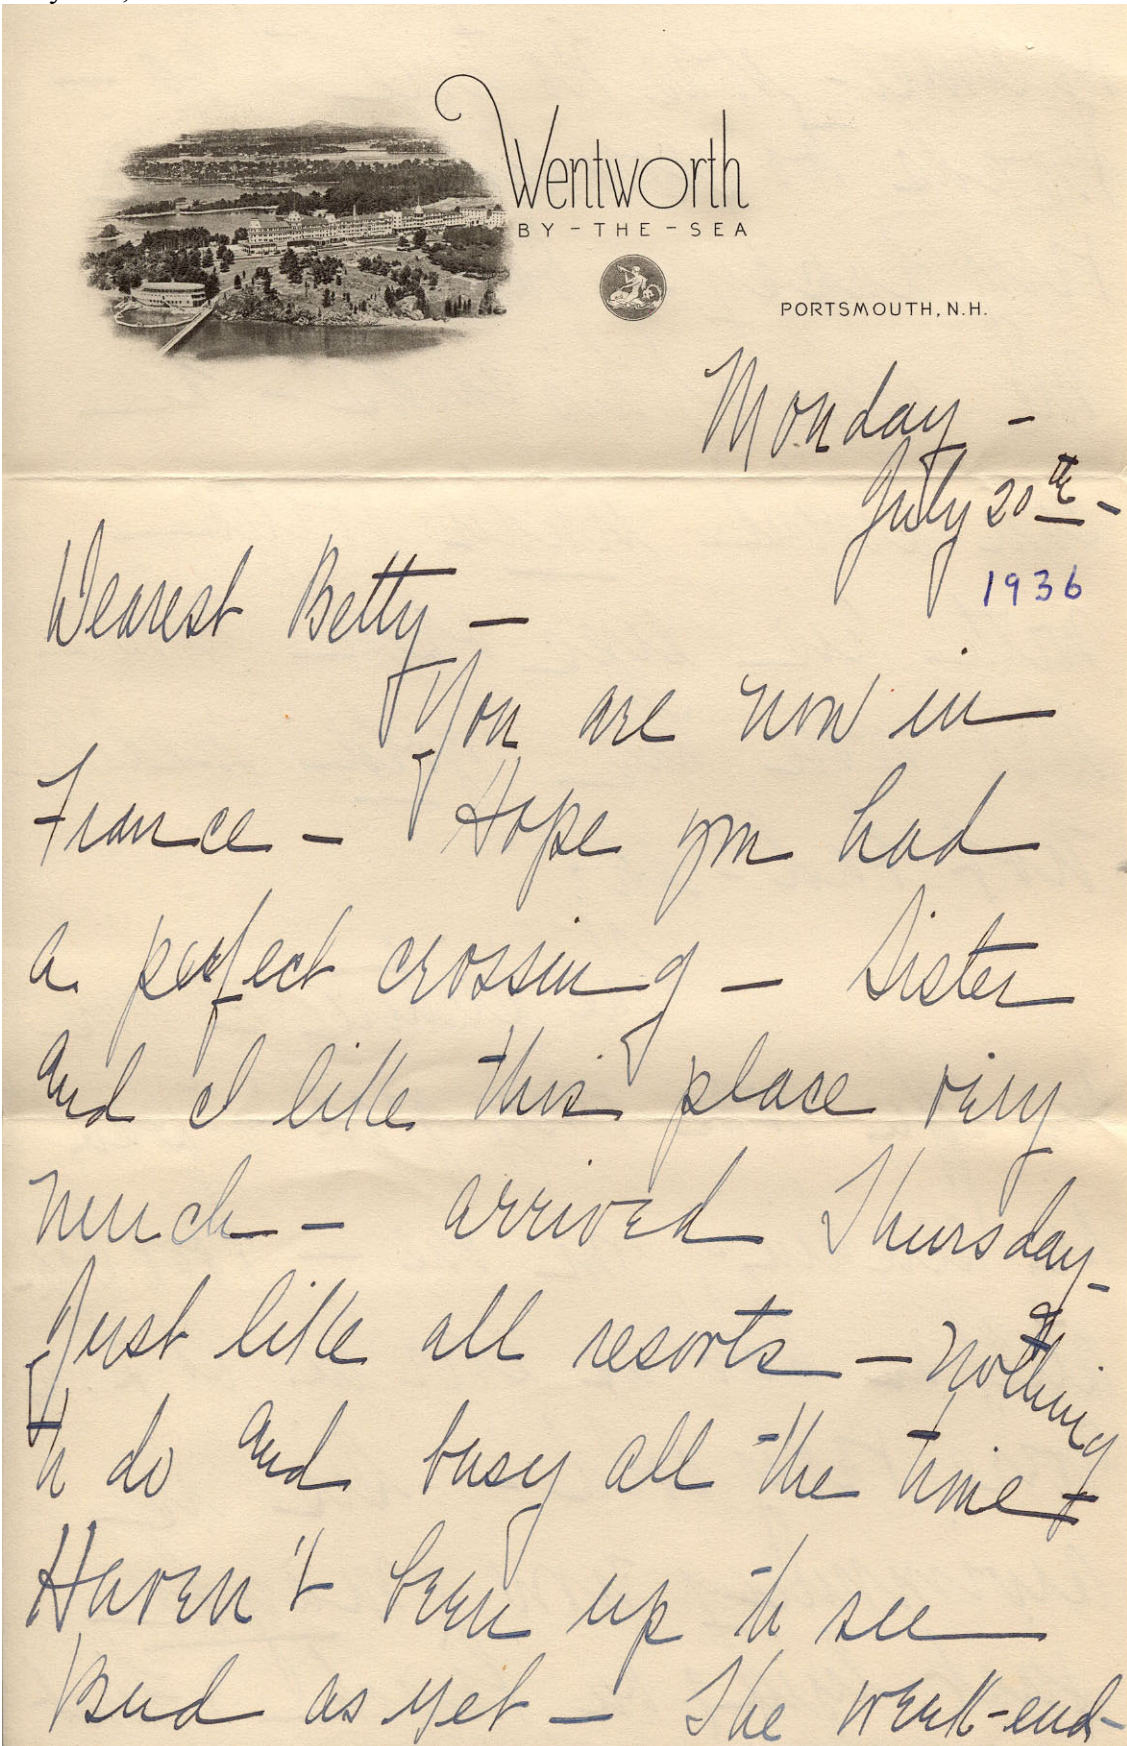 Wentworth
BY-THE-SEA
PORTSMOUTH, N.H.
Monday -
July 20th -
1936
Dearest Betty -
You are now in
France - Hope you had
a perfect crossing - Sister
and I like this place very
much - arrived Thursday -
Just like all resorts - nothing
to do and busy all the time -
Haven't been up to see
Bud as yet - The week-end -